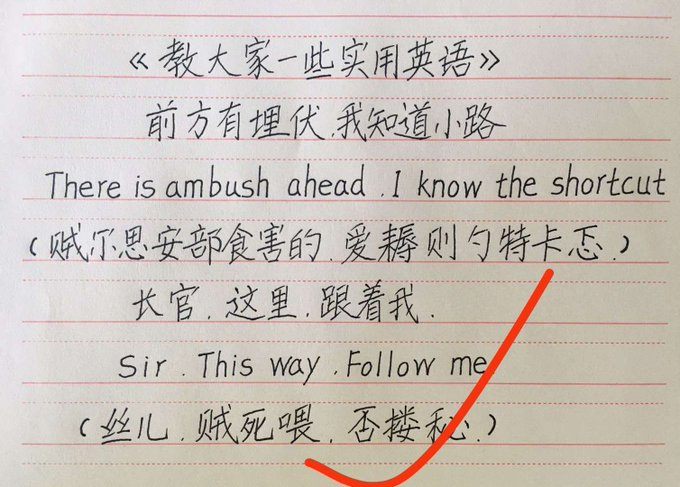 《教大家一些实用英语》
前方有埋伏.我知道小路
There is ambush ahead . I know the shortcut
(贼尔思安部食害的.爱耨则勺特卡忑.)
长官.这里.跟着我.
Sir . This way . Follow me
(丝儿.贼死喂.否搂秘.)